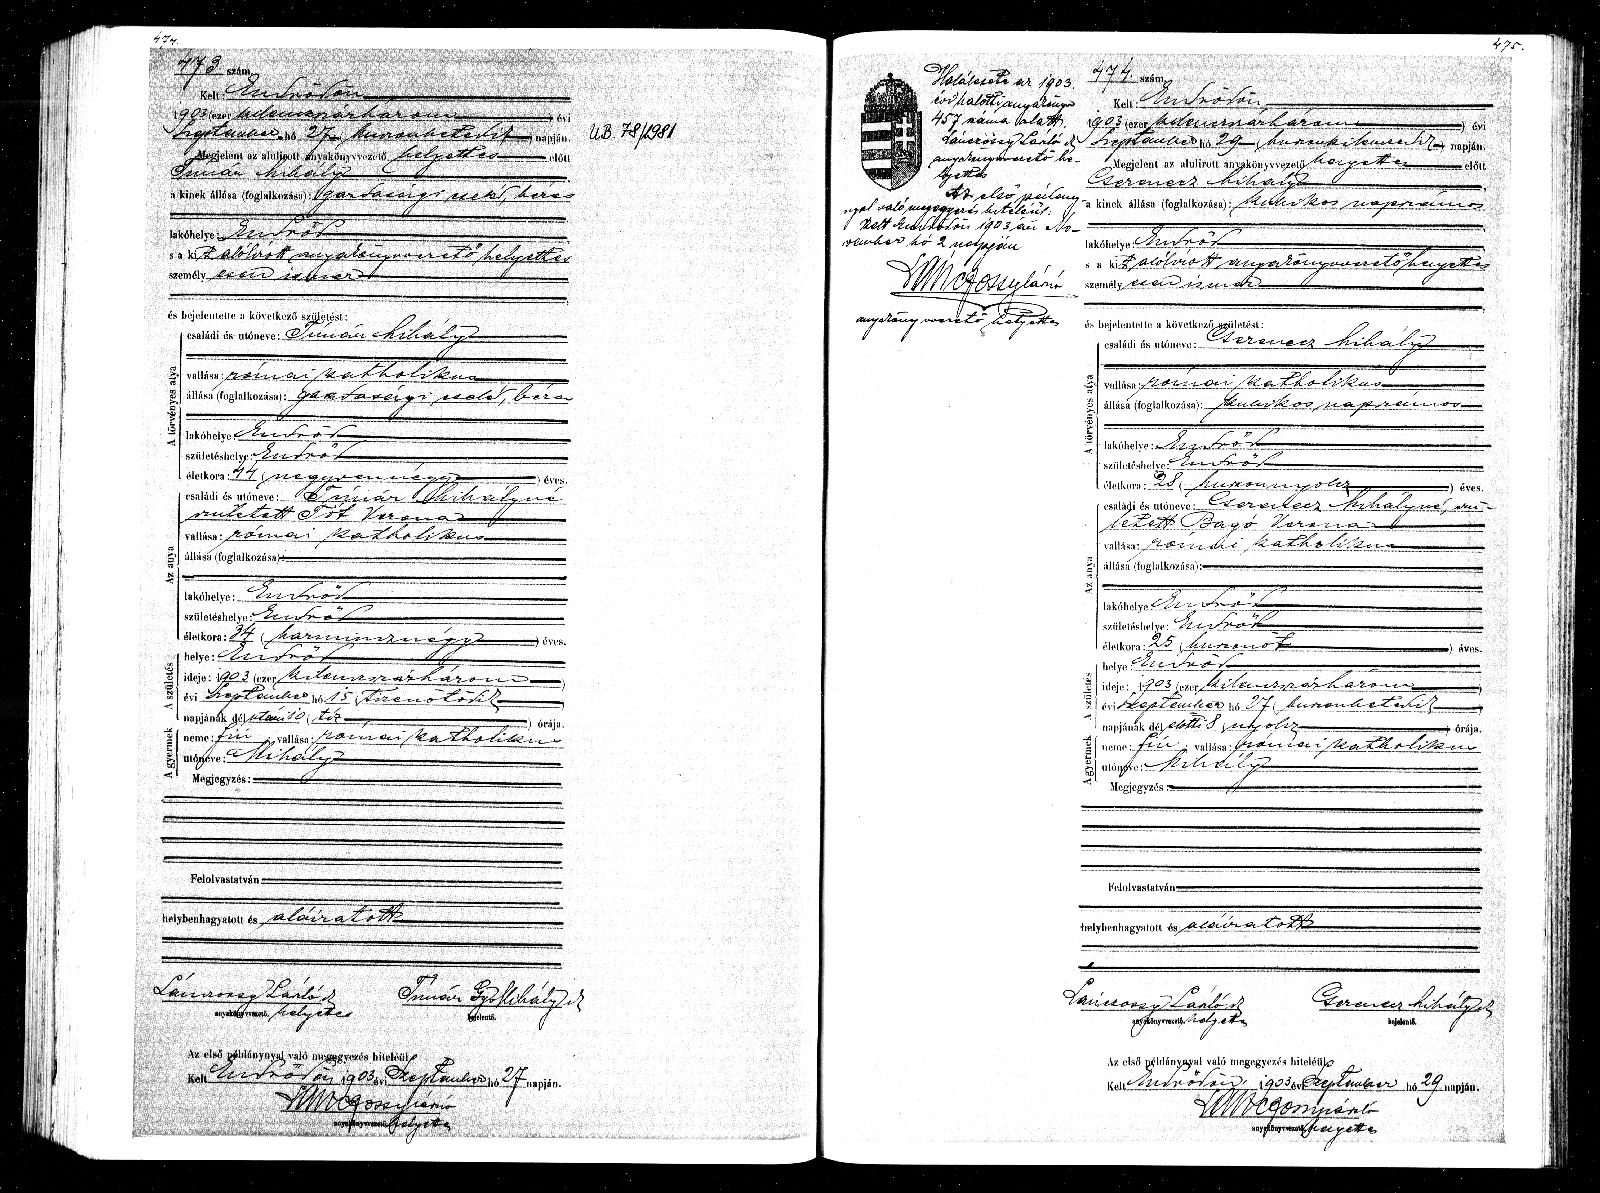 474.
473 szám.
Kelt: Endrődön
1903 (ezer kilenczszázhárom) évi
szeptember hó 27 (huszonhetedik) napján.
Megjelent az alulírott anyakönyvvezető helyettes előtt
Tímár Mihály
a kinek állása (foglalkozása): gazdasági cseléd, béres
lakóhelye: Endrőd
s a kit alólírott anyakönyvvezető helyettes
személyesen ismer
és bejelentette a következő születést:
A törvényes atya
családi és utóneve: Tímár Mihály
vallása: római katholikus
állása (foglalkozása): gazdasági cseléd, béres
lakóhelye: Endrőd
születéshelye: Endrőd
életkora: 44 (negyvennégy) éves.
Az anya
családi és utóneve: Tímár Mihályné
született Tót Verona
vallása: római katholikus
állása (foglalkozása):
lakóhelye: Endrőd
születéshelye: Endrőd
életkora: 34 (harmincznégy) éves.
A születés
helye: Endrőd
ideje: 1903 (ezer kilenczszázhárom)
évi szeptember hó 15 (tizenötödik)
napjának délutáni 10 (tíz) órája.
A gyermek
neme: fiú vallása: római katholikus
utóneve: Mihály
Megjegyzés:
Felolvastatván
helybenhagyatott és aláíratott
Lánczossy László Tímár Mihály
anyakönyvvezető helyettes bejelentő.
Az első példánynyal való megegyezés hiteléül
Kelt Endrődön, 1903 évi szeptember hó 27 napján.
Lánczossy László
anyakönyvvezető helyettes
U.B. 78/1981
475.
Halálesete az 1903.
évi halotti anyakönyv
457 száma alatt.
Lánczossy László
anyakönyvvezető he-
lyettes
Az első példány-
nyal való megegyezés hiteléül.
Kelt Endrődön 1903 évi No-
vember hó 2 napján
Lánczossy László
anyakönyvvezető helyettes
474. szám.
Kelt: Endrődön
1903 (ezer kilenczszázhárom) évi
szeptember hó 29 (huszonkilenczedik) napján.
Megjelent az alulírott anyakönyvvezető helyettes előtt
Cserenecz Mihály
a kinek állása (foglalkozása): kubikos napszámos
lakóhelye: Endrőd
s a kit alólírott anyakönyvvezető helyettes
személyesen ismer
és bejelentette a következő születést:
A törvényes atya
családi és utóneve: Cserenecz Mihály
vallása: római katholikus
állása (foglalkozása): kubikos napszámos
lakóhelye: Endrőd
születéshelye: Endrőd
életkora: 28 (huszonnyolcz) éves.
Az anya
családi és utóneve: Cserenecz Mihályné, szü-
letett Bagó Verona
vallása: római katholikus
állása (foglalkozása):
lakóhelye: Endrőd
születéshelye: Endrőd
életkora: 25 (huszonöt) éves.
A születés
helye Endrőd
ideje: 1903 (ezer kilenczszázhárom)
évi szeptember hó 27 (huszonhetedik)
napjának délelőtti 8 (nyolcz) órája.
A gyermek
neme: fiú vallása: római katholikus
utóneve: Mihály
Megjegyzés:
Felolvastatván
helybenhagyatott és aláíratott
Lánczossy László Cserenecz Mihály
anyakönyvvezető helyettes bejelentő.
Az első példánynyal való megegyezés hiteléül
Kelt Endrődön, 1903 évi szeptember hó 29 napján.
Lánczossy László
anyakönyvvezető helyettes